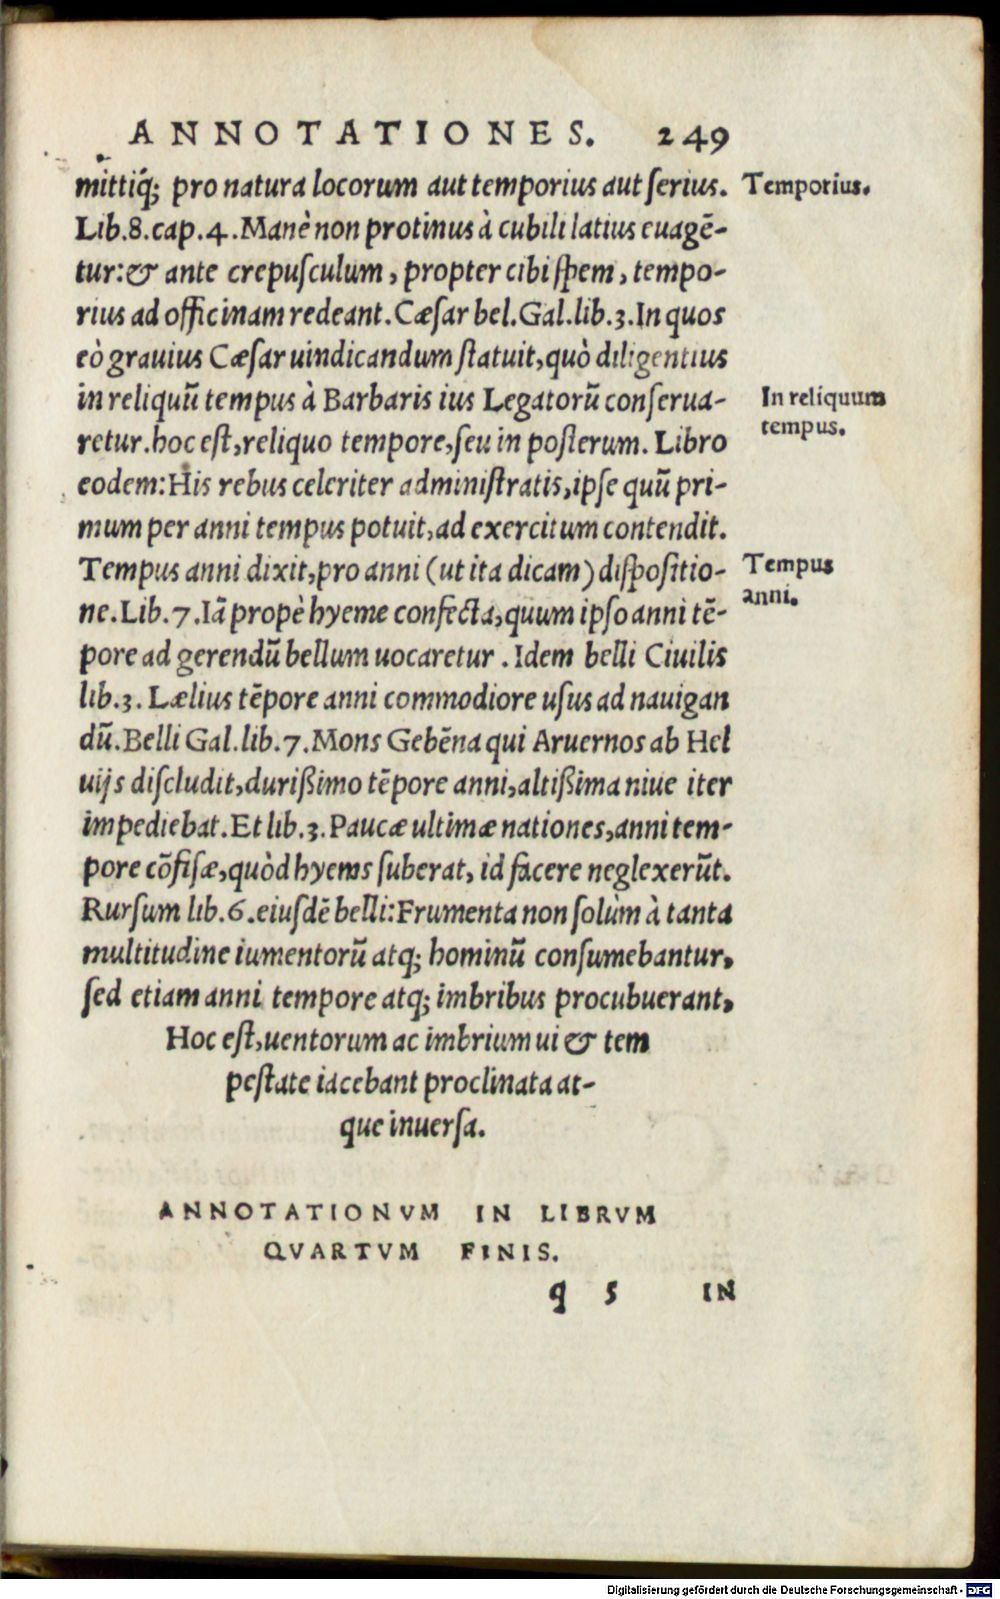 ANNOTATIONES. 249
mittiq́; pro natura locorum aut temporius aut serius.
Temporius.
Lib.8.cap.4.Manè non protinus à cubili latius euagē-
tur:& ante crepusculum, propter cibi spem, tempo-
rius ad officinam redeant. Cæsar bel.Gal.lib.3.In quos
eò grauius Cæsar uindicandum statuit, quò diligentius
in reliquū tempus à Barbaris ius Legatorū conserua-
In reliquum
retur.hoc est, reliquo tempore, seu in posterum. Libro
tempus.
eodem:His rebus celeriter administratis, ipse quū pri-
mum per anni tempus potuit, ad exercitum contendit.
Tempus anni dixit, pro anni (ut ita dicam) dispositio-
Tempus
ne.Lib.7.Iā propè hyeme confecta, quum ipso anni tē-
anni.
pore ad gerendū bellum uocaretur . Idem belli Ciuilis
lib.3. Lælius tēpore anni commodiore usus ad nauigan
dū.Belli Gal.lib.7.Mons Gebēna qui Aruernos ab Hel
uijs discludit, durißimo tēpore anni, altißima niue iter
impediebat.Et lib.3.Paucæ ultimæ nationes, anni tem-
pore cōfisæ, quòd hyems suberat, id facere neglexerūt.
Rursum lib.6.eiusdē belli:Frumenta non solùm à tanta
multitudine iumentorū atq; hominū consumebantur,
sed etiam anni tempore atq; imbribus procubuerant,
Hoc est, uentorum ac imbrium ui & tem
pestate iacebant proclinata at-
que inuersa.
ANNOTATIONVM IN LIBRVM
QVARTVM FINIS.
q 5 IN
Digitalisierung gefördert durch die Deutsche Forschungsgemeinschaft - DFG